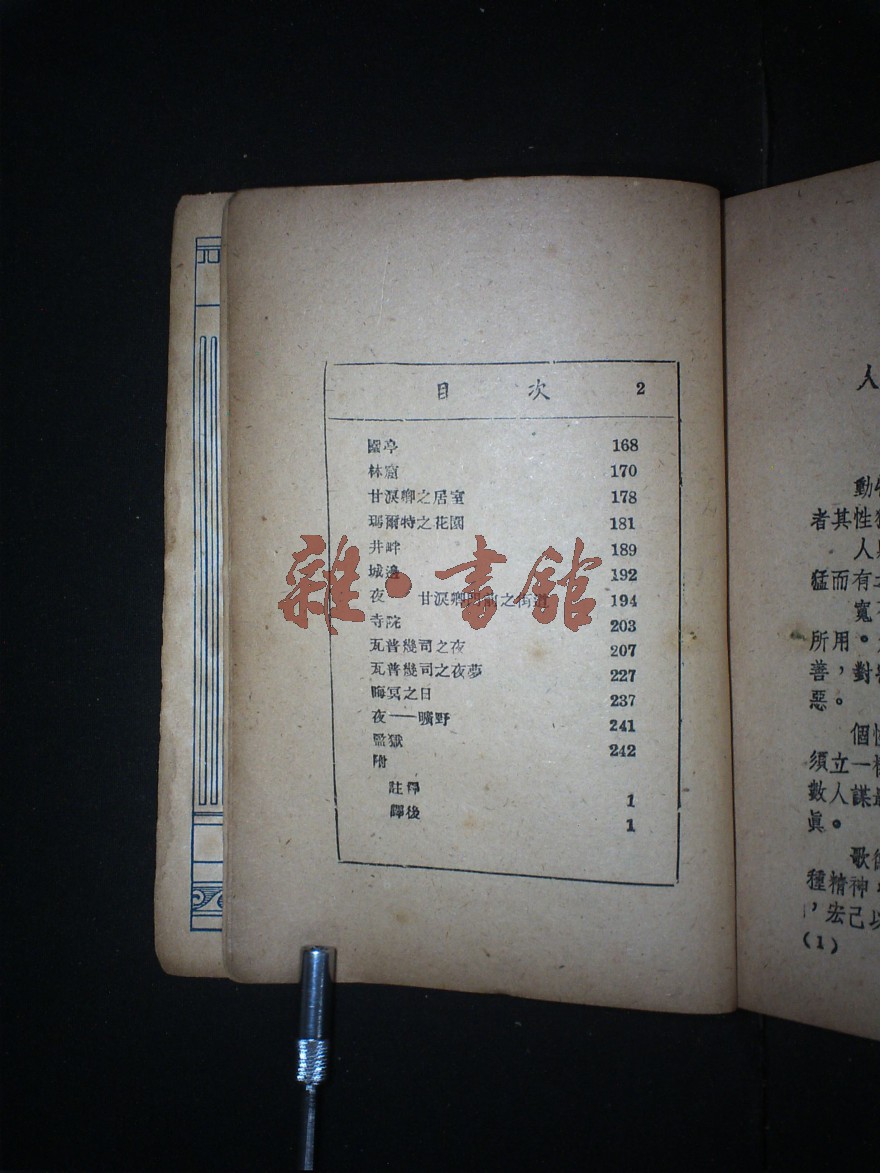 目 次 2
園亭 168
林窟 170
甘淚卿之居室 178
瑪爾特之花園 181
井畔 189
城邊 192
夜 甘淚卿門前之街道 194
寺院 203
瓦普幾司之夜 207
瓦普幾司之夜夢 227
晦冥之日 237
夜——曠野 241
監獄 242
附
註釋 1
譯後 1
雜·書館
人
動
者其性
人
猛而有
寬
所用。
善,對
惡。
個性
須立一
數人謀
眞。
歌
種精神
,宏己以
(1)